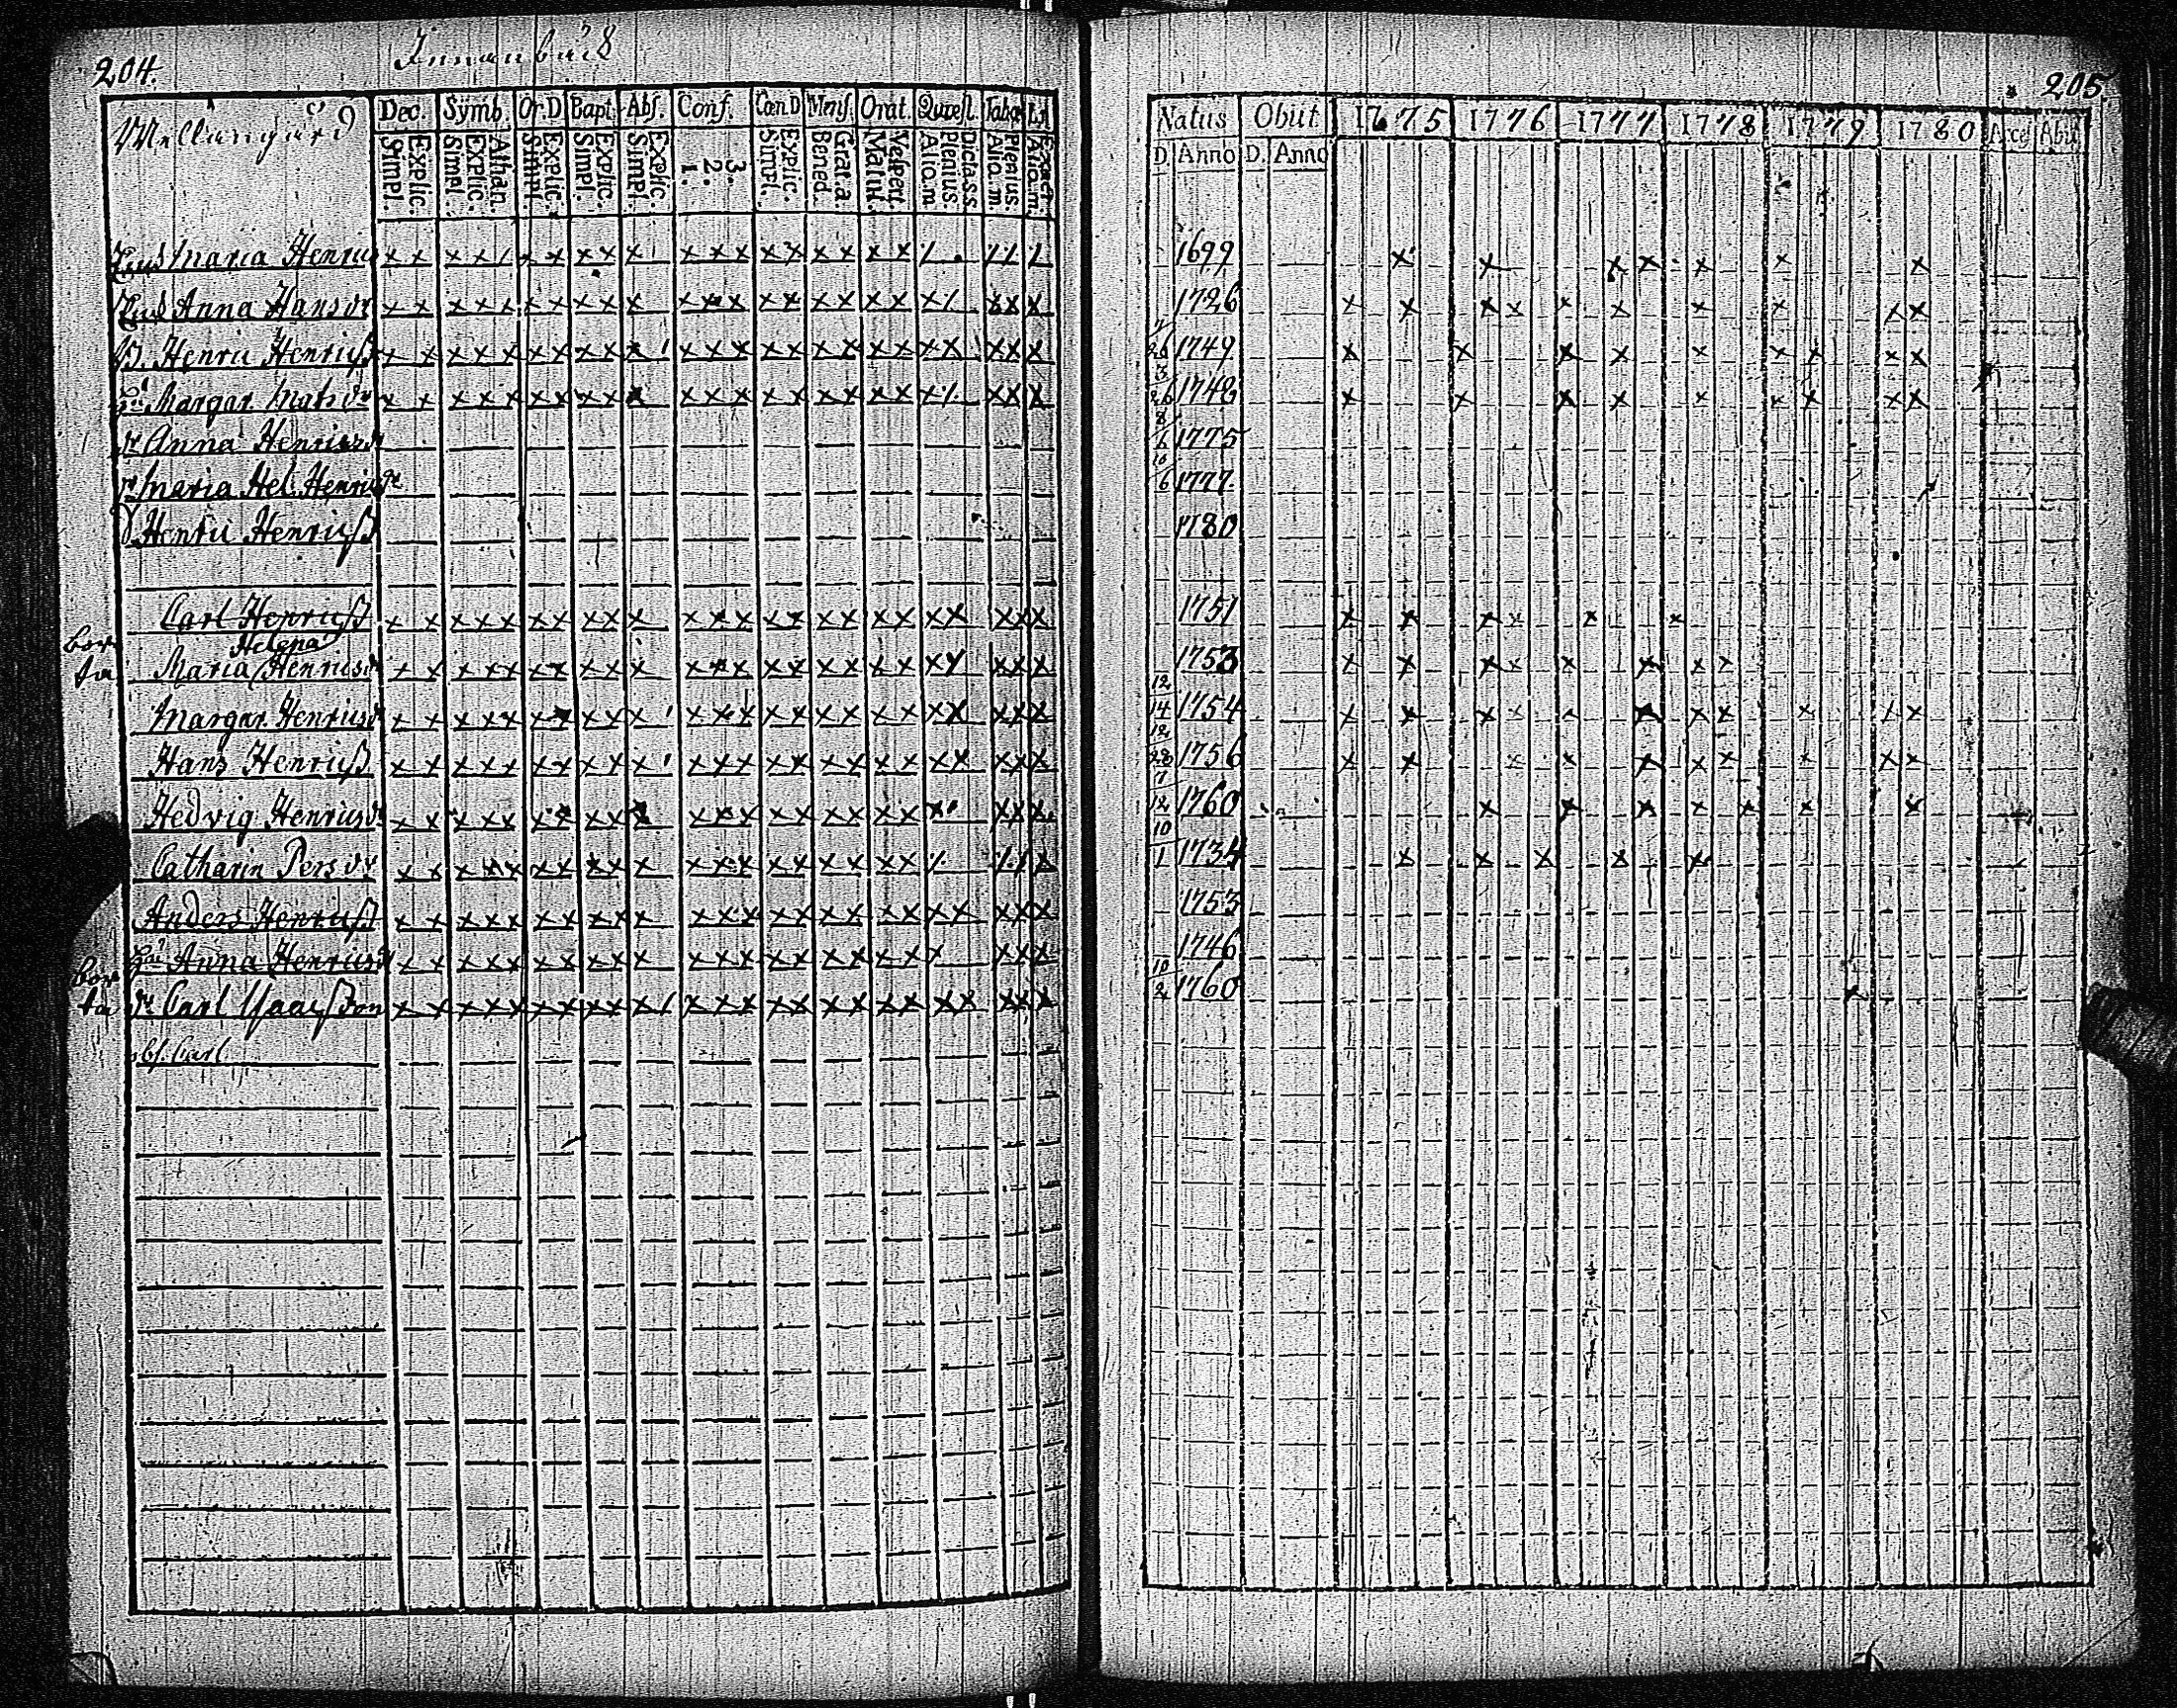 204.
Innanbäck
Mellangård
Dec. Symb. Or.D Bapt. Abs. Conf. Cœn D Mens. Orat. Quæst. Tabæ
Explic. Simpl. Athan. Explic. Simpl. Explic. Simpl. Explic. Simpl. Explic. Simpl. 3. 2. 1. Explic. Simpl. Grat. a. Bened. Vesper. Matut. Dicta s.s. Plenius. Alio.m Plenius. Alio.m.
Maria Henrics
Anna Hansdr
B. Henric Henricss
hu Margar. Matsdr
dr Anna Henricsdr
dr Maria Hel. Henricsdr
Henric Henricss
Carl Henricss
bor
ta
Helena
Maria Henricsdr
Margar. Henricsdr
Hans Henricss
Hedvig Henricsdr
Catharin Persdr
Anders Henricss
hu Anna Henricsdr
bor
ta
Carl
Carl
205.
Natus Obiit 1775 1776 1777 1778 1779 1780 Acceß Abiit
D. Anno D. Anno
1699
1726
26 1749
26 1748
8/6 1775
10/6 1777.
1780
1751
1753
12/14 1754
12/28 1756
12 1760
10/1 1734
1753
1746
10/2 1760